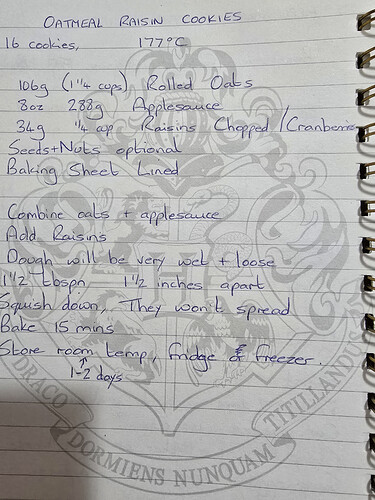 OATMEAL RAISIN COOKIES
16 cookies, 177°C
106g (1 1/4 cups) Rolled Oats
8oz 288g Applesauce
34g 1/4 cup Raisins Chopped/Cranberries
Seeds+Nuts optional
Baking Sheet Lined
Combine oats + applesauce
Add Raisins
Dough will be very wet + loose
1 1/2 tbspn, 1 1/2 inches apart
Squish down, They won't spread
Bake 15 mins
Store room temp, fridge & freezer.
↑
1-2 days
DRACO DORMIENS NUNQUAM TITILLANDUS